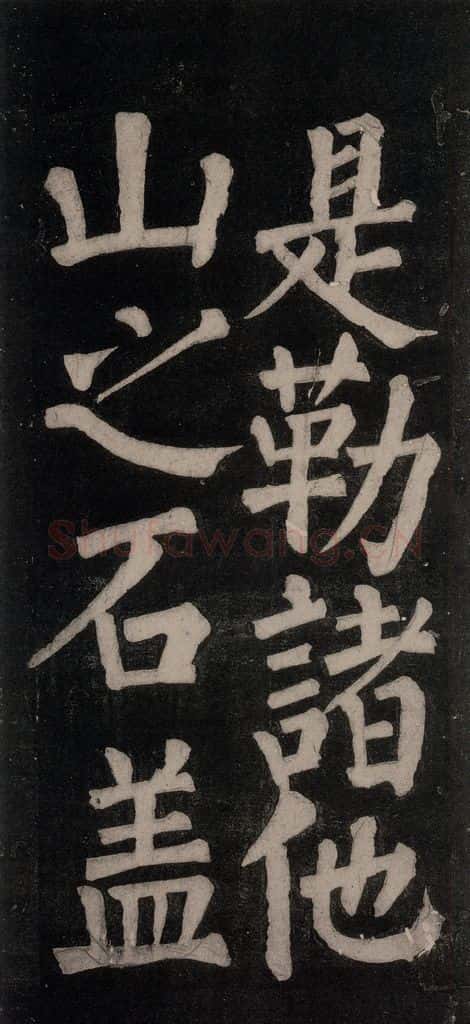 是勒諸他
山之石盖
Shufawang.CN